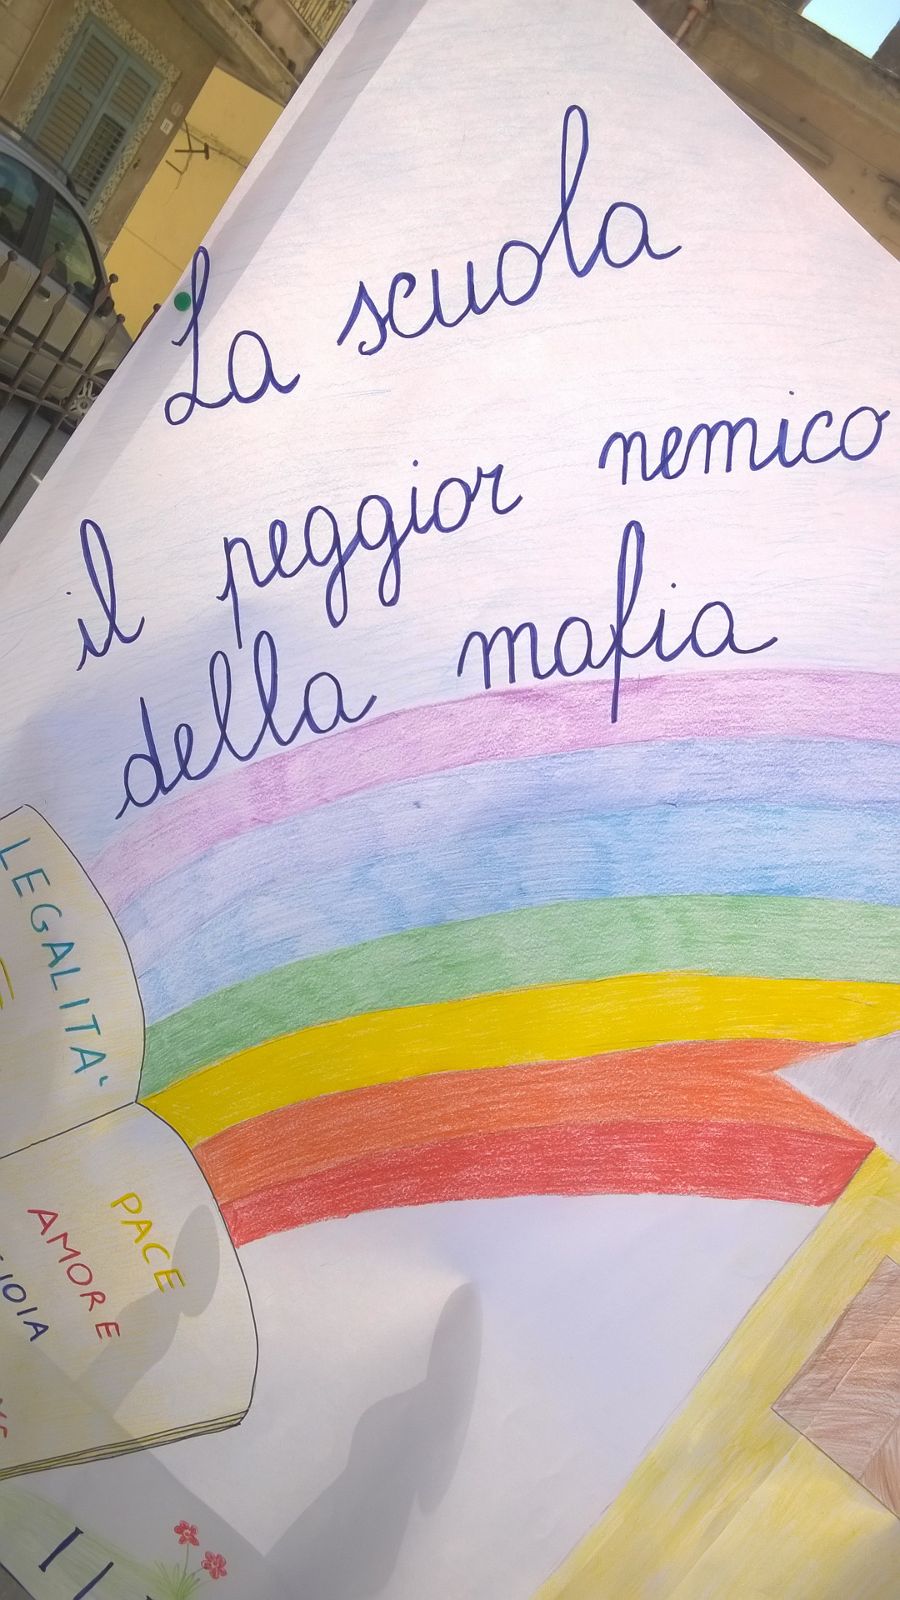 La scuola
il peggior nemico
della mafia
LEGALITA'
PACE
AMORE